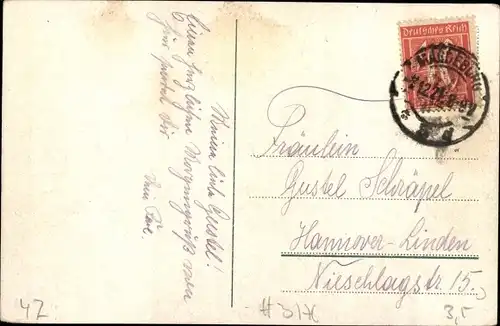 Meine liebe Gustel!
Einen herzlichen Morgengruß von
hier sendet Dir
Dein
Deutsches Reich
MAGDEBURG
Fräulein
Gustel Schräpel
Hannover-Linden
Nieschlagstr. 15.
42
3,5